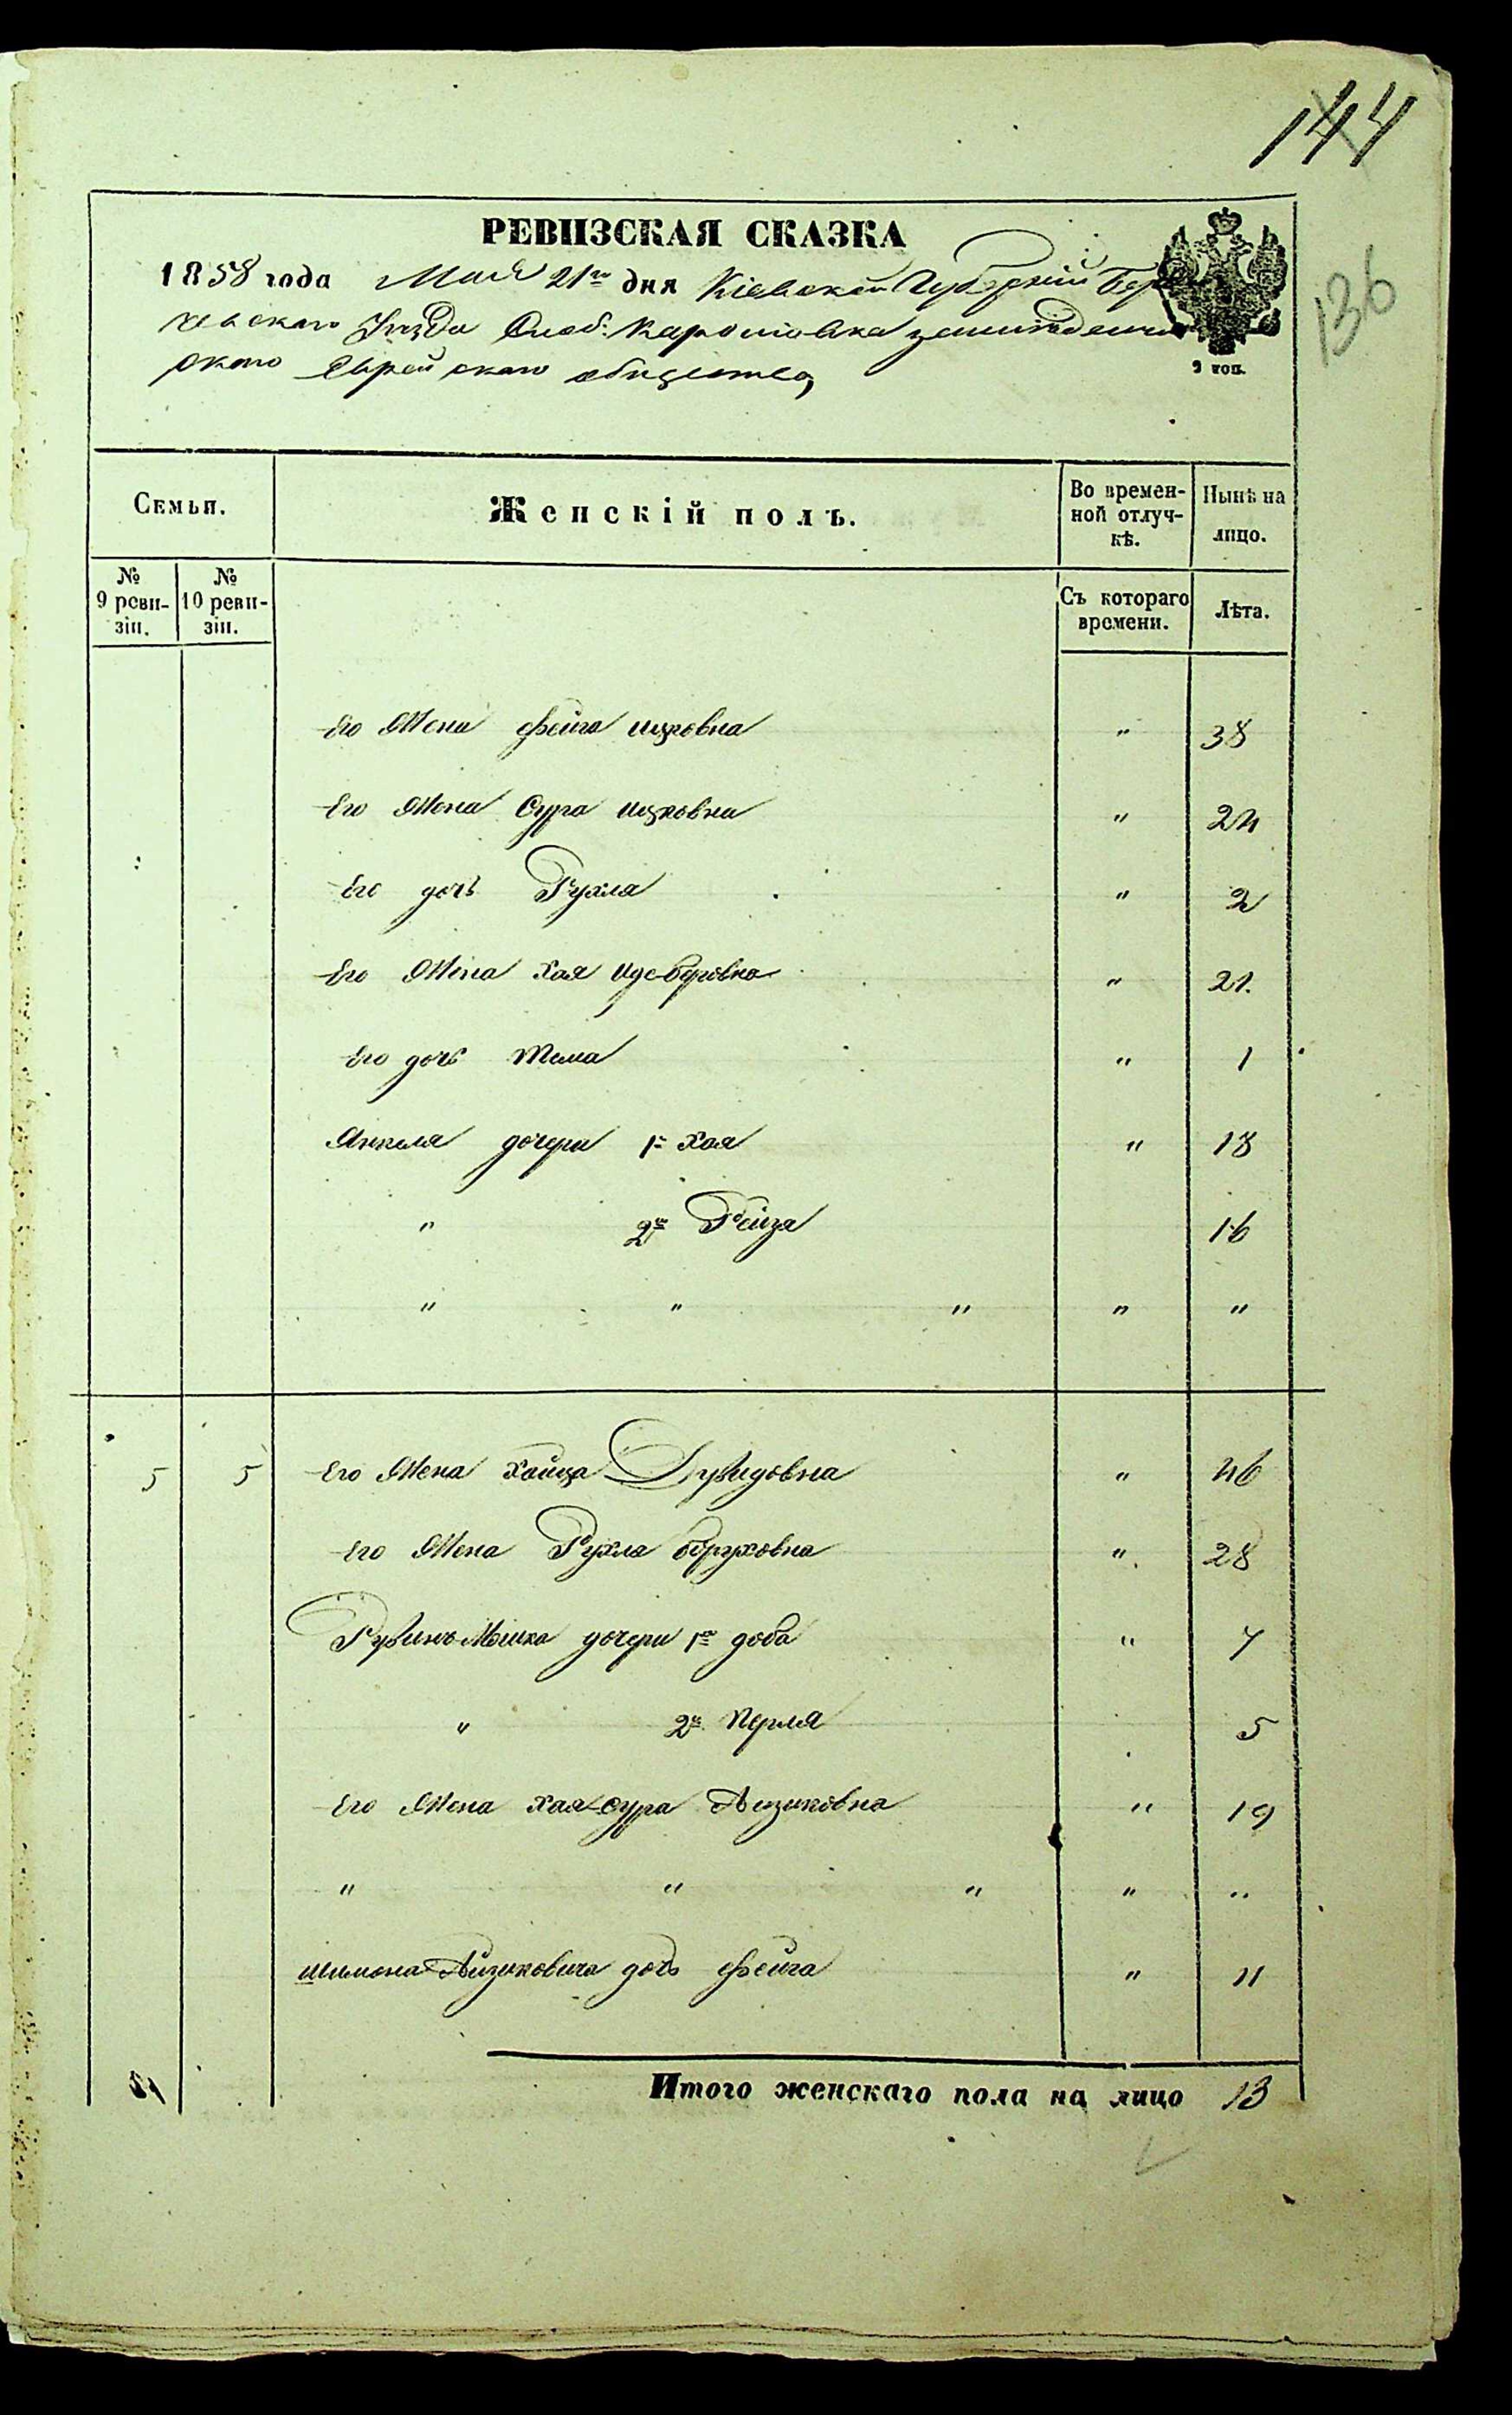 144
136
РЕВИЗСКАЯ СКАЗКА
1858 года Мая 21го дня Кіевской Губерніи Берди
чевскаго Уѣзда Слоб:
скаго Еврейскаго общества,
9 коп.
Семьи.
Женскій полъ.
Во времен-
ной отлуч-
кѣ.
Нынѣ на
лицо.
№
9 реви-
зіи.
№
10 реви-
зіи.
Съ котораго
времени.
Лѣта.
Его Жена Фейга Ицковна " 38
Его Жена Сура Ицковна " 24
Его дочь Рухля " 2
Его Жена Хая Иде-Беровна " 21.
Его дочь Тема " 1
Янкеля дочери 1я Хая " 18
" 2я Рейза 16
" " " " "
5 5 Его Жена Хайця Дувидовна " 46
Его Жена Рухля Боруховна " 28
Рувинъ-Мошка дочери 1я доба " 7
" 2я Перля 5
Его Жена Хая-Сура Аизиковна " 19
" " " " "
Шимона Айзиковича дочь Фейга " 11
Итого женскаго пола на лицо 13